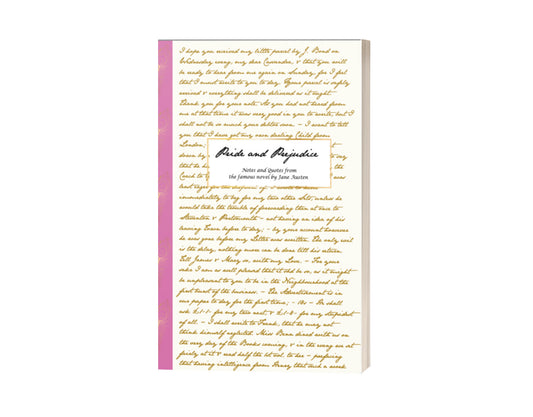 I hope you received my little parcel by J. Bond on
Wednesday eveng, my dear Cassandra, & that you will
be ready to hear from me again on Sunday, for I feel
that I must write to you to day. Your parcel is safely
arrived & everything shall be delivered as it ought.
Thank you for your note. As you had not heard from
me at that time it was very good in you to write, but I
shall not be so much your debtor soon. – I want to tell
you that I have got my own darling Child from
London;
down by
that he
the
Coach to
Pride and Prejudice
Notes and Quotes from
the famous novel by Jane Austen
immediately to beg for my two other Sets, unless he
would take the trouble of forwarding them at once to
Steventon & Portsmouth – not having an idea of his
leaving Town before to day; – by your account however
he was gone before my Letter was written. The only evil
is the delay, nothing more can be done till his return.
Tell James & Mary so, with my Love. – For your
sake I am as well pleased that it shd be so, as it might
be unpleasant to you to be in the Neighbourhood at the
first burst of the business. – The Advertisement is in
our paper to day for the first time; – 18s – He shall
ask £1-1- for my two next & £1-8- for my stupidest
of all. – I shall write to Frank, that he may not
think himself neglected. Miss Benn dined with us on
the very day of the Books coming, & in the eveng we set
fairly at it & read half the 1st vol. to her – prefacing
that having intelligence from Henry that such a work